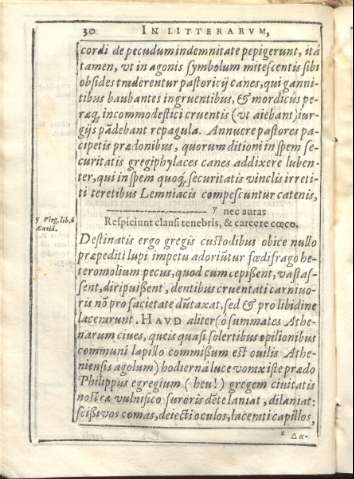 30 IN LITTERARVM,
cordi de pecudum indemnitate pepigerunt, ita
tamen, vt in agonis symbolum mitescentis sibi
obsides traderentur pastoricij canes, qui ganni-
tibus baubantes ingruentibus, & mordicùs pe-
raq; incommodestici cruentis (vt aiebant) iur-
gijs pādebant repagula. Annuere pastores pa-
cipetis prædonibus, quorum ditioni in spem se-
curitatis gregiphylaces canes addixere luben-
ter, qui in spem quoq; securitatis vinclis irreti-
ti teretibus Lemniacis compescuntur catenis,
y nec auras
y Virg. lib. 6
Æneid.
Respiciunt clausi tenebris, & carcere cæco.
Destinatis ergo gregis custodibus obice nullo
præpediti lupi impetu adoriūtur fœdifrago he-
teromolium pecus, quod cum cepissent, vastas-
sent, diripuissent, dentibus cruentati carniuo-
ris nō pro sacietate dūtaxat, sed & pro libidine
lacerarunt. HAVD aliter (ô summates Athe-
narum ciues, queis quasi solertibus opilionibus
communi lapillo commissum est ouilis Athe-
niensis agolum) hodierna luce vobis iste prædo
Philippus egregium (heu!) gregem ciuitatis
nostræ vulnifico furoris dēte laniat, dilaniat:
scissi vos comas, deiecti oculos, lacerati capillos,